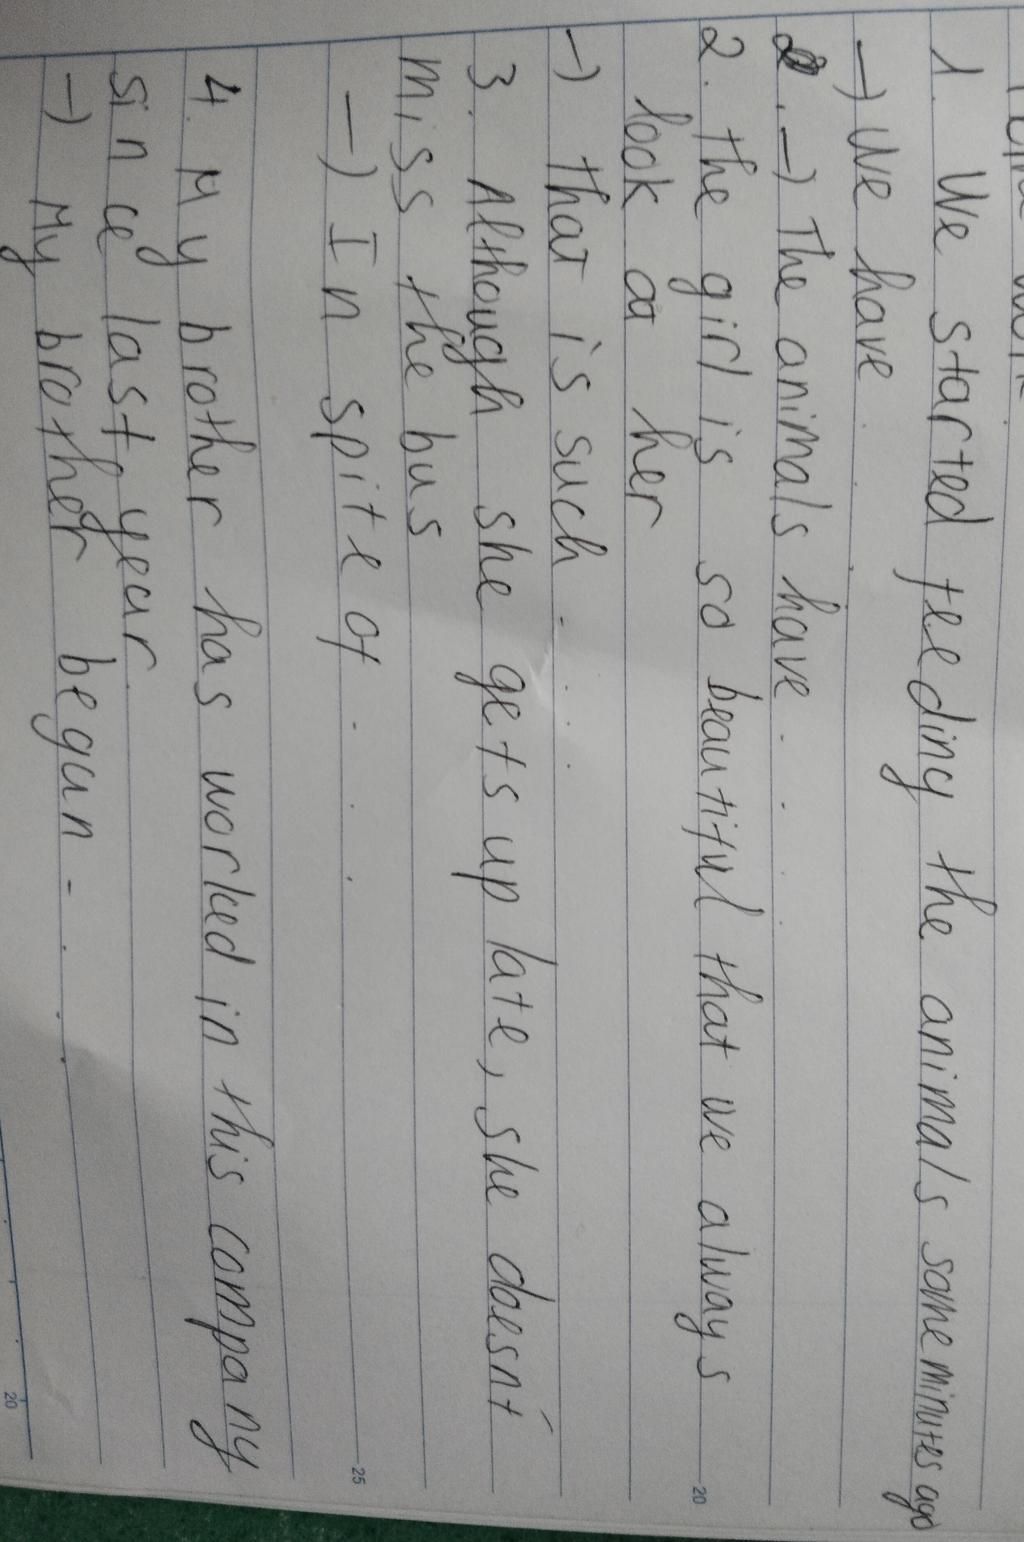 1. We started feeding the animals some minutes ago
→ We have
→ The animals have . . .
2. the girl is so beautiful that we always
look at her
→ that is such . . .
3. Although she gets up late, she doesn't
miss the bus
→ In spite of . . .
4. My brother has worked in this company
since last year
→ My brother began . . .
20
25
20